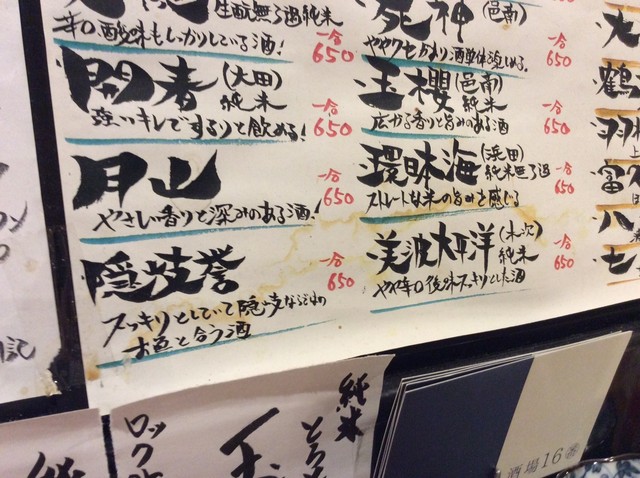 生酛無ろ過純米
辛口酸味もしっかりしている酒！
一合
650
開春
(大田)
純米
強いキレでするりと飲める！
一合
650
月山
やさしい香りと深みのある酒！
一合
650
隠岐誉
スッキリとしていて隠岐ならではの
お魚と合う酒
一合
650
死神
(邑南)
ややクセあり酒単体で楽しめる。
一合
650
玉櫻
(邑南)
純米
広がる香りと旨みのある酒
一合
650
環日本海
(浜田)
純米無ろ過
ストレートな米の旨みを感じる
一合
650
美波太平洋
(木次)
純米
やや辛口後味スッキリとした酒
一合
650
鶴
羽
上
富
八
七
純米
とろ
ロック
酒場16